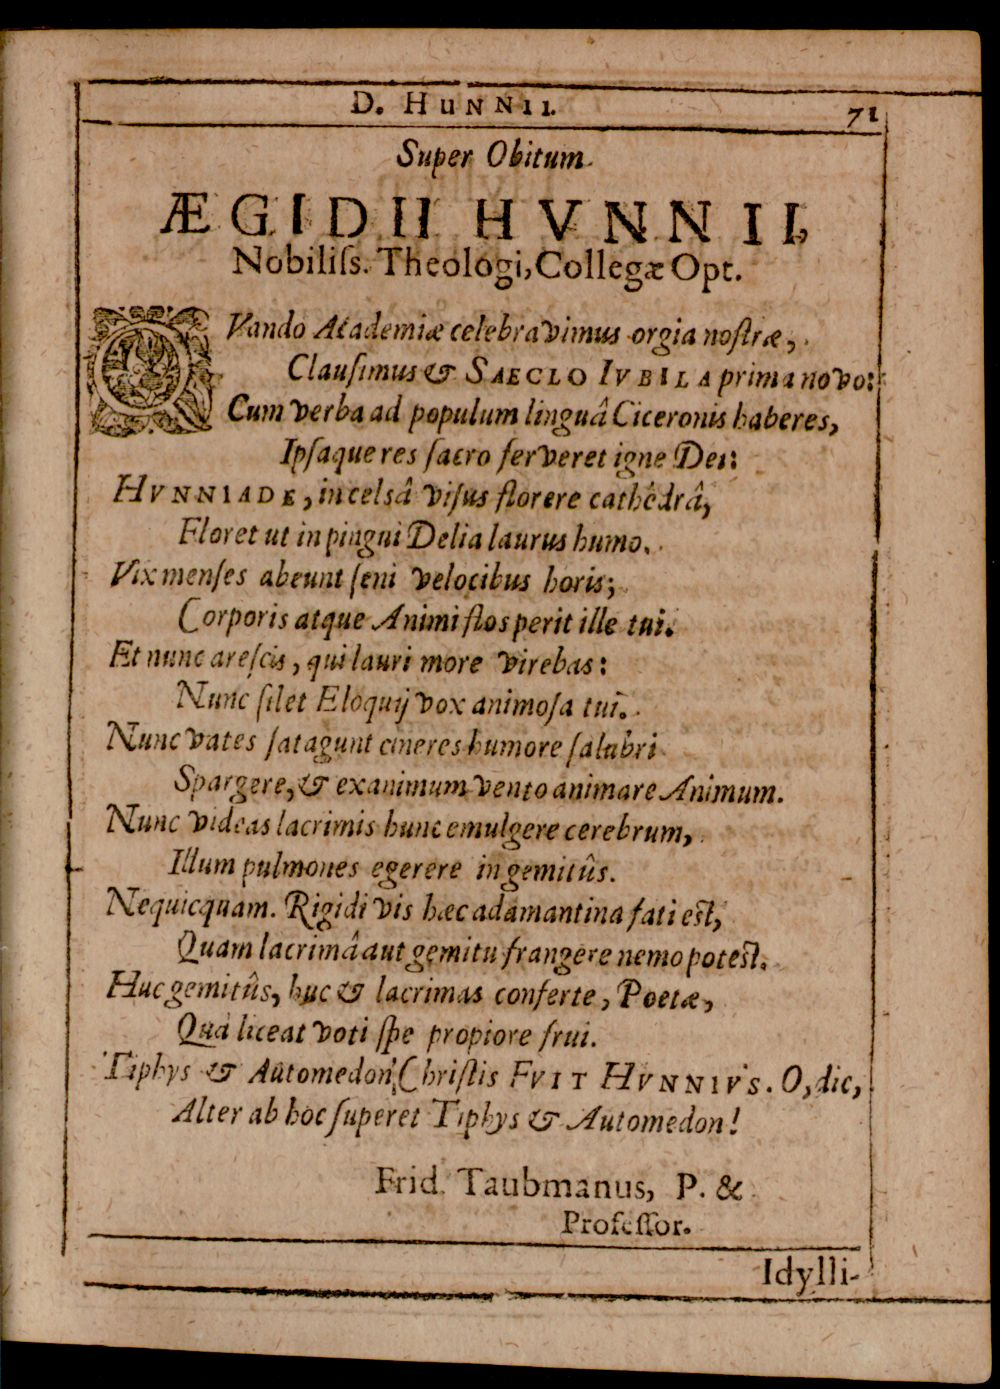 D. HUNNII. 71
Super Obitum
ÆGIDII HVNNII,
Nobiliſs. Theologi, Collegæ Opt.
QVando Academiæ celebravimus orgia noſtræ,
Clauſimus & SAECLO IVBILA prima novo:
Cum verba ad populum linguâ Ciceronis haberes,
Ipſaque res ſacro ferveret igne Dei:
HVNNIADE, in celsâ viſus florere cathêdrâ,
Floret ut in pingui Delia laurus humo.
Vix menſes abeunt ſeni velocibus horis;
Corporis atque Animi flos perit ille tui.
Et nunc areſcis, qui lauri more virebas:
Nunc ſilet Eloquij vox animoſa tui.
Nunc vates ſatagunt cineres humore ſalubri
Spargere, & exanimum vento animare Animum.
Nunc videas lacrimis hunc emulgere cerebrum,
Illum pulmones egerere in gemitûs.
Nequicquam. Rigidi vis hæc adamantina fati eſt,
Quam lacrimâ aut gemitu frangere nemo poteſt.
Huc gemitûs, huc & lacrimas conferte, Poetæ,
Quà liceat voti ſpe propiore frui.
Tiphys & Automedon Chriſtis FVIT HVNNIVS. O, dic,
Alter ab hoc ſuperet Tiphys & Automedon!
Frid. Taubmanus, P. &
Profeſſor.
Idylli-